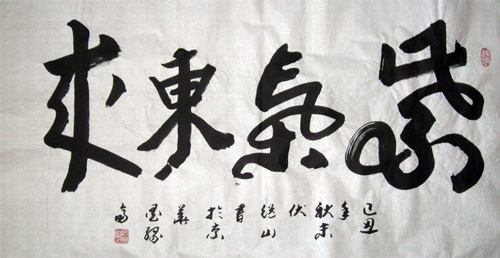 紫氣東來
己丑年秋末伏継山書於京華墨緣斋